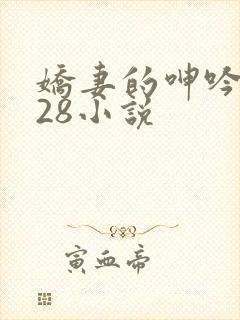 嬌妻的呻吟
28小說
寅血帝